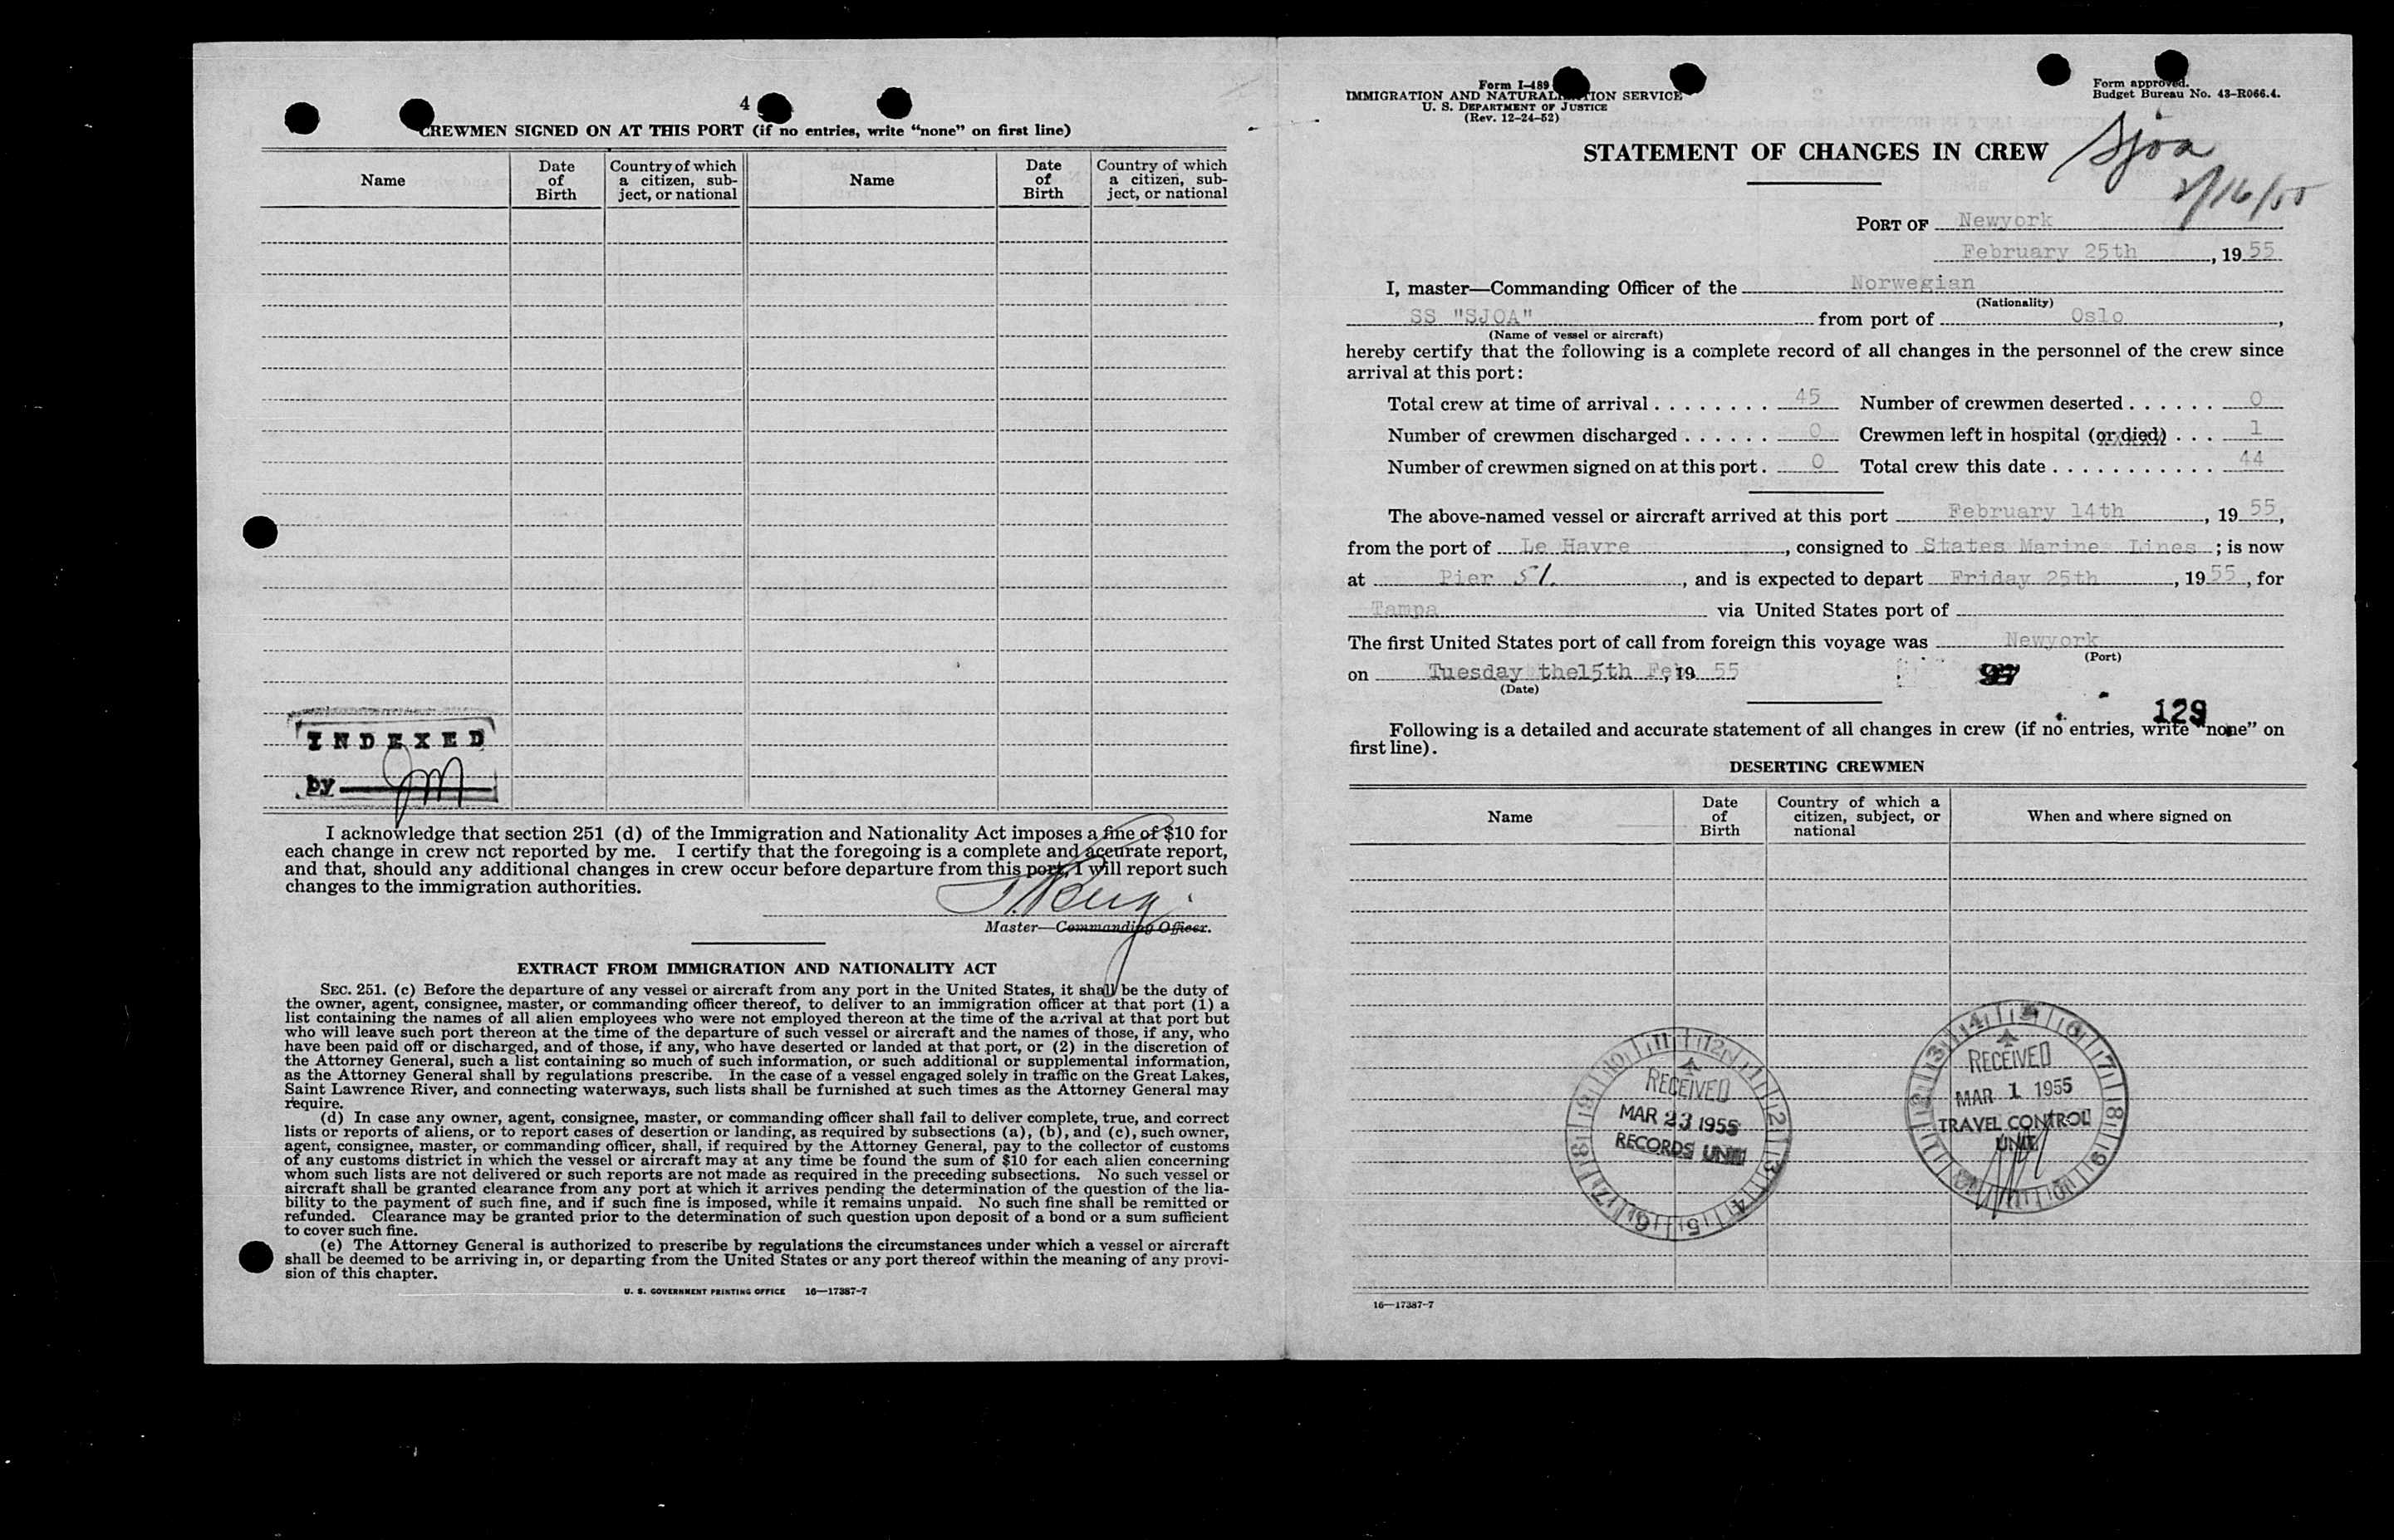 4
CREWMEN SIGNED ON AT THIS PORT (if no entries, write “none” on first line)
Name
Date of Birth
Country of which a citizen, subject, or national
Name
Date of Birth
Country of which a citizen, subject, or national
INDEXED
by JM
I acknowledge that section 251 (d) of the Immigration and Nationality Act imposes a fine of $10 for
each change in crew not reported by me. I certify that the foregoing is a complete and accurate report,
and that, should any additional changes in crew occur before departure from this port, I will report such
changes to the immigration authorities.
Master—Commanding Officer.
EXTRACT FROM IMMIGRATION AND NATIONALITY ACT
SEC. 251. (c) Before the departure of any vessel or aircraft from any port in the United States, it shall be the duty of
the owner, agent, consignee, master, or commanding officer thereof, to deliver to an immigration officer at that port (1) a
list containing the names of all alien employees who were not employed thereon at the time of the arrival at that port but
who will leave such port thereon at the time of the departure of such vessel or aircraft and the names of those, if any, who
have been paid off or discharged, and of those, if any, who have deserted or landed at that port, or (2) in the discretion of
the Attorney General, such a list containing so much of such information, or such additional or supplemental information,
as the Attorney General shall by regulations prescribe. In the case of a vessel engaged solely in traffic on the Great Lakes,
Saint Lawrence River, and connecting waterways, such lists shall be furnished at such times as the Attorney General may
require.
(d) In case any owner, agent, consignee, master, or commanding officer shall fail to deliver complete, true, and correct
lists or reports of aliens, or to report cases of desertion or landing, as required by subsections (a), (b), and (c), such owner,
agent, consignee, master, or commanding officer, shall, if required by the Attorney General, pay to the collector of customs
of any customs district in which the vessel or aircraft may at any time be found the sum of $10 for each alien concerning
whom such lists are not delivered or such reports are not made as required in the preceding subsections. No such vessel or
aircraft shall be granted clearance from any port at which it arrives pending the determination of the question of the lia-
bility to the payment of such fine, and if such fine is imposed, while it remains unpaid. No such fine shall be remitted or
refunded. Clearance may be granted prior to the determination of such question upon deposit of a bond or a sum sufficient
to cover such fine.
(e) The Attorney General is authorized to prescribe by regulations the circumstances under which a vessel or aircraft
shall be deemed to be arriving in, or departing from the United States or any port thereof within the meaning of any provi-
sion of this chapter.
U. S. GOVERNMENT PRINTING OFFICE 16—17387-7
Form I-489
IMMIGRATION AND NATURALIZATION SERVICE
U. S. DEPARTMENT OF JUSTICE
(Rev. 12-24-52)
Form approved.
Budget Bureau No. 43-R066.4.
STATEMENT OF CHANGES IN CREW
Sjoa
2/16/55
PORT OF Newyork
February 25th, 1955
I, master—Commanding Officer of the Norwegian
(Nationality)
SS "SJOA" from port of Oslo,
(Name of vessel or aircraft)
hereby certify that the following is a complete record of all changes in the personnel of the crew since
arrival at this port:
Total crew at time of arrival 45 Number of crewmen deserted 0
Number of crewmen discharged 0 Crewmen left in hospital (or died) 1
Number of crewmen signed on at this port 0 Total crew this date 44
The above-named vessel or aircraft arrived at this port February 14th, 1955,
from the port of Le Havre, consigned to States Marine Lines; is now
at Pier 51., and is expected to depart Friday 25th, 1955, for
Tampa via United States port of
The first United States port of call from foreign this voyage was Newyork
(Port)
on Tuesday the15th Feb, 19 55
(Date)
129
Following is a detailed and accurate statement of all changes in crew (if no entries, write “none” on
first line).
DESERTING CREWMEN
Name
Date of Birth
Country of which a citizen, subject, or national
When and where signed on
RECEIVED
MAR 23 1955
RECORDS UNIT
RECEIVED
MAR 1 1955
TRAVEL CONTROL
UNIT
16—17387-7